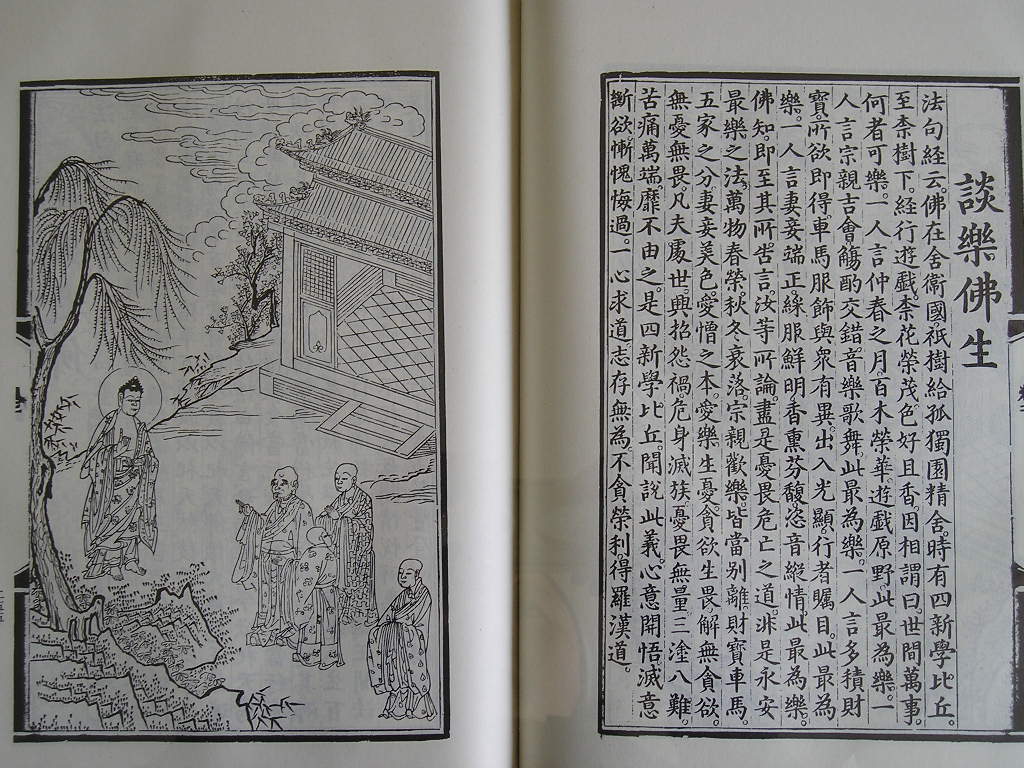 談樂佛生
法句經云。佛在舍衛國祇樹給孤獨園精舍。時有四新學比丘。
至柰樹下。經行遊戲。柰花榮茂。色好且香。因相謂曰。世間萬事。
何者可樂。一人言仲春之月。百木榮華。遊戲原野。此最為樂。一
人言宗親吉會。觴酌交錯。音樂歌舞。此最為樂。一人言多積財
寶。所欲即得。車馬服飾。與眾有異。出入光顯。行者矚目。此最為
樂。一人言妻妾端正。綵服鮮明。香熏芬馥。恣音縱情。此最為樂。
佛知。即至其所。告言汝等所論。盡是憂畏危亡之道。非是永安
最樂之法。萬物春榮秋冬衰落。宗親歡樂。皆當別離。財寶車馬。
五家之分。妻妾美色。愛憎之本。愛樂生憂。貪欲生畏。解無貪欲。
無憂無畏。凡夫處世。興招怨禍。危身滅族。憂畏無量。三塗八難。
苦痛萬端。靡不由之。是四新學比丘。聞說此義。心意開悟。滅意
斷欲。慚愧悔過。一心求道。志存無為。不貪榮利。得羅漢道。